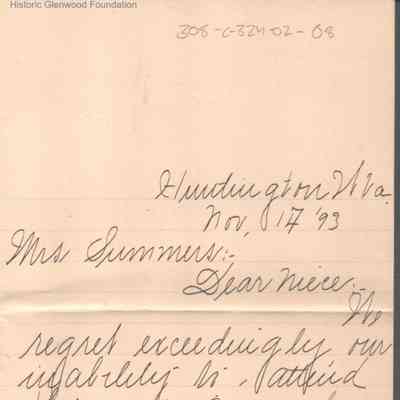 Historic Glenwood Foundation
308-C-324-02-08
Huntington W Va.
Nov, 17 '93
Mrs Summers:-
Dear niece:-
We
regret exceedingly our
inability to attend